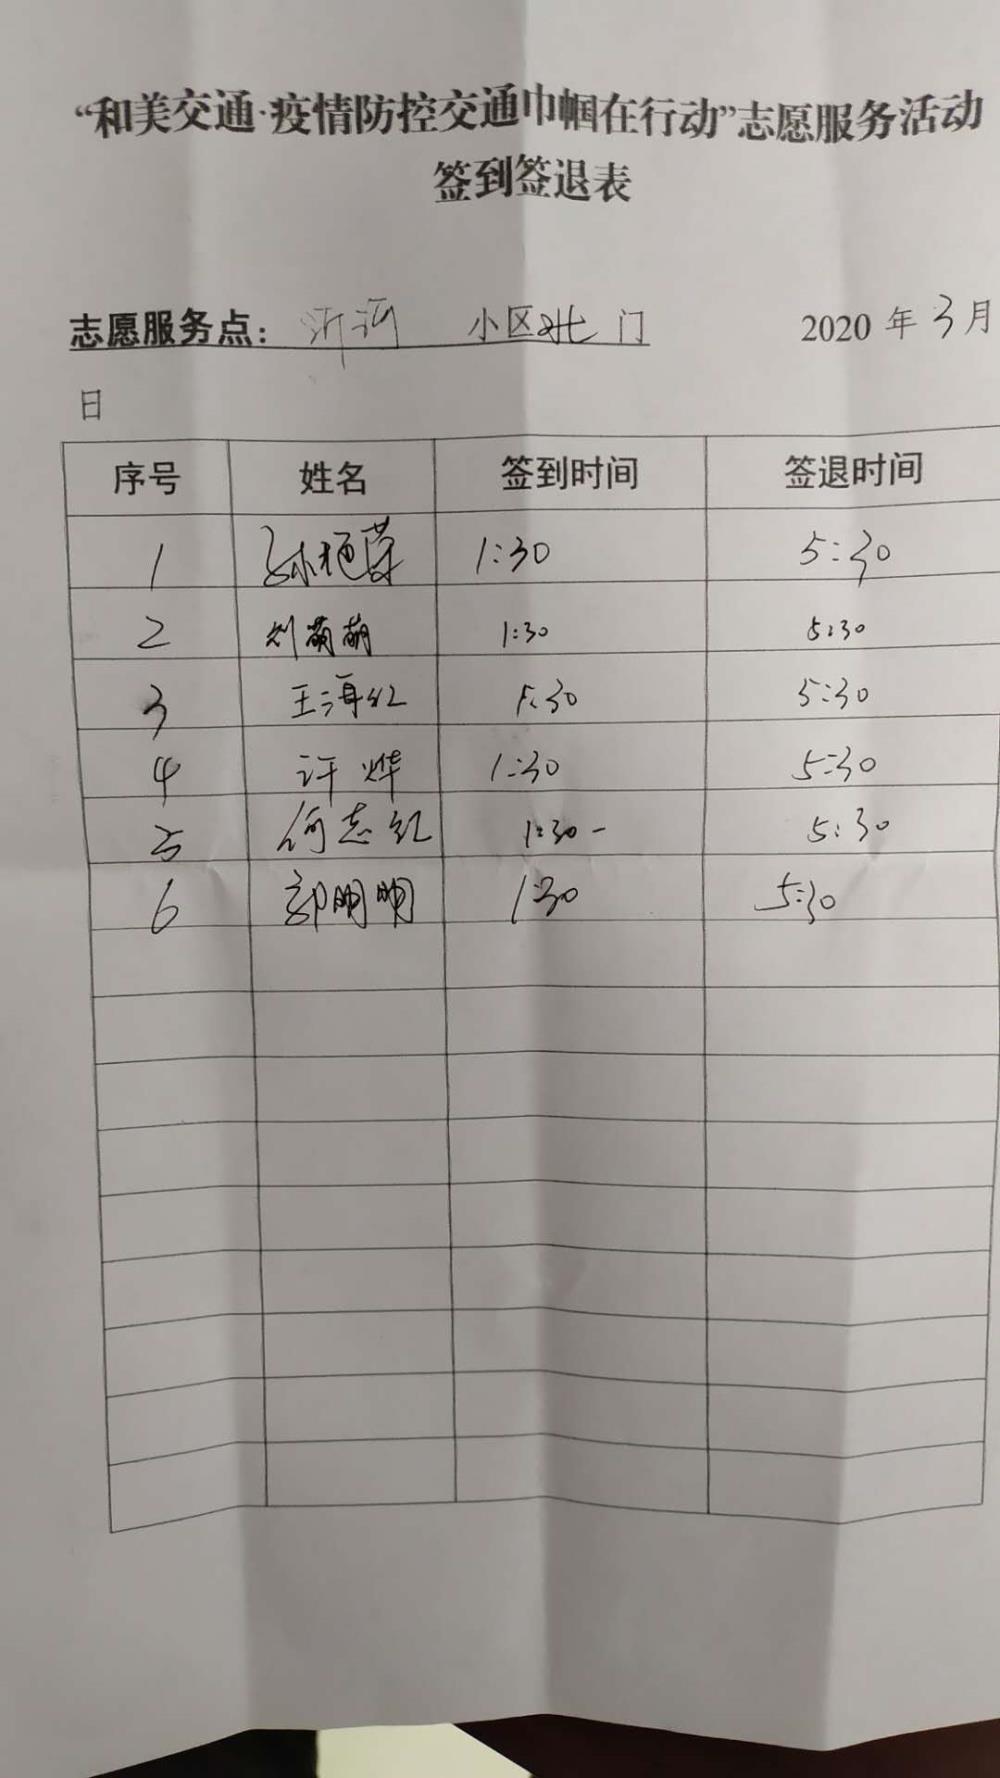 “和美交通·疫情防控交通巾帼在行动”志愿服务活动
签到签退表
志愿服务点： 小区北门 2020 年 3 月
日
序号 姓名 签到时间 签退时间
1 孙艳荣 1:30 5:30
2 刘萌萌 1:30 5:30
3 王海红 1:30 5:30
4 许烨 1:30 5:30
5 何志红 1:30- 5:30
6 郭明明 1:30 5:30